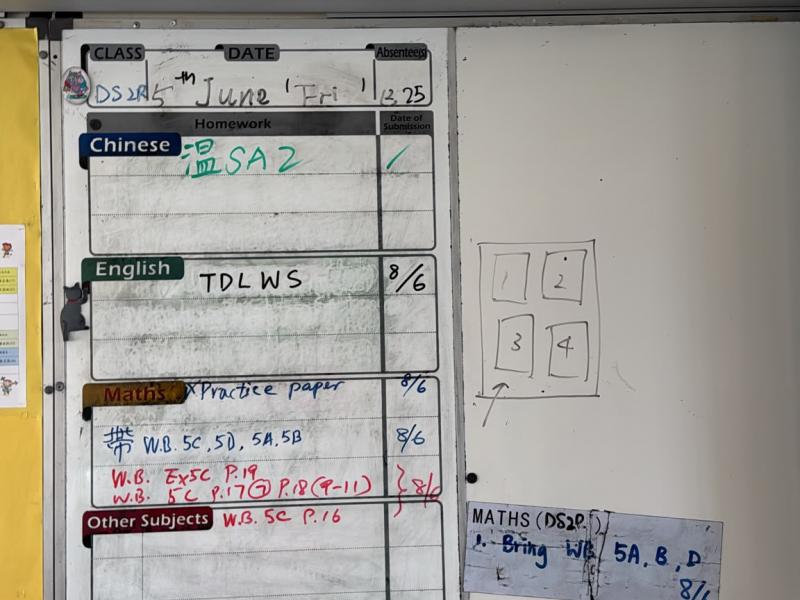 CLASS DATE Absentee(s)
DS2R 5th June (Fri) 13 25
Homework Date of Submission
Chinese 温SA2 /
English TDL WS 8/6
Maths Practice paper 8/6
帶 W.B. 5C, 5D, 5A, 5B 8/6
W.B. Ex5C P.19
W.B. 5C P.17⑦ P.18(9-11) } 8/6
Other Subjects W.B. 5C P.16
1 2
3 4
MATHS (DS2P.)
1. Bring WB 5A, B, D
8/